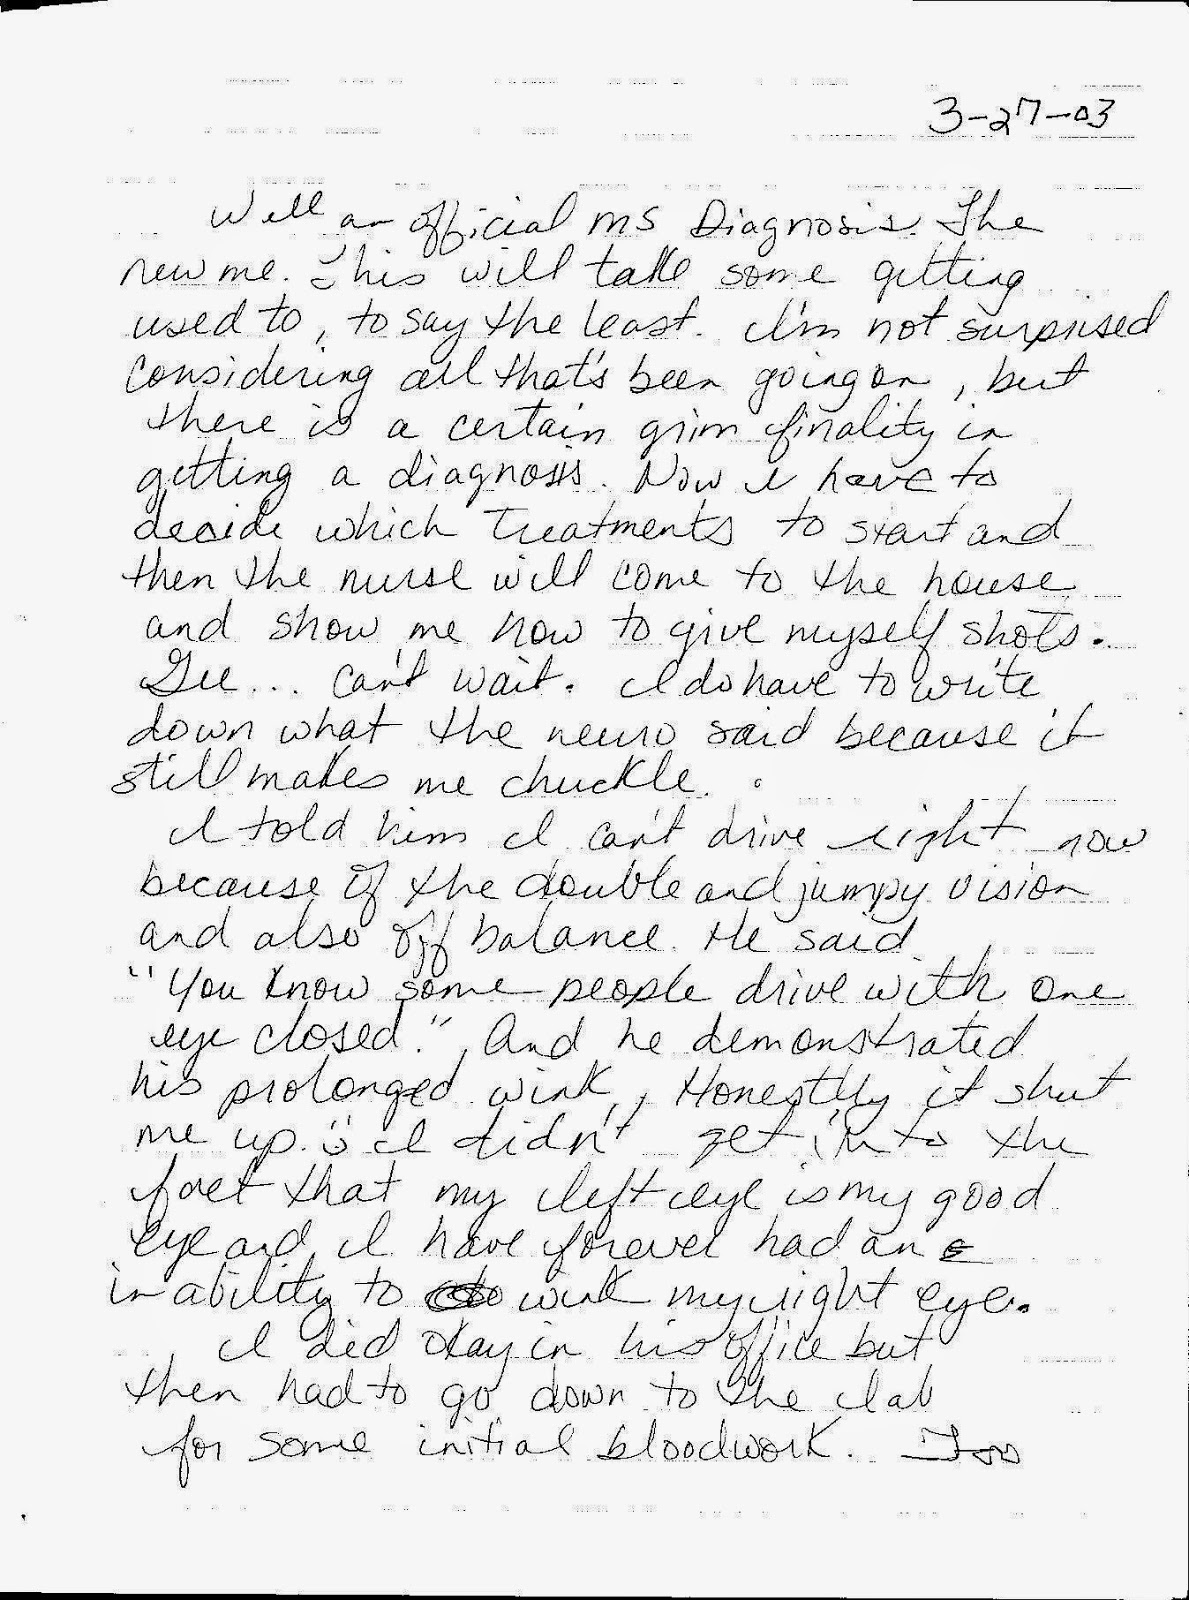 3-27-03
Well an official MS Diagnosis. The
new me. This will take some getting
used to, to say the least. I'm not surprised
considering all that's been going on, but
there is a certain grim finality in
getting a diagnosis. Now I have to
decide which treatments to start and
then the nurse will come to the house
and show me how to give myself shots.
Gee... can't wait. I do have to write
down what the neuro said because it
still makes me chuckle.
I told him I can't drive right now
because of the double and jumpy vision
and also off balance. He said
"You know some people drive with one
eye closed." And he demonstrated
his prolonged wink, Honestly it shut
me up. I didn't get into the
fact that my left eye is my good
eye and I have forever had an
inability to wink my right eye.
I did okay in his office but
then had to go down to the lab
for some initial bloodwork. Too